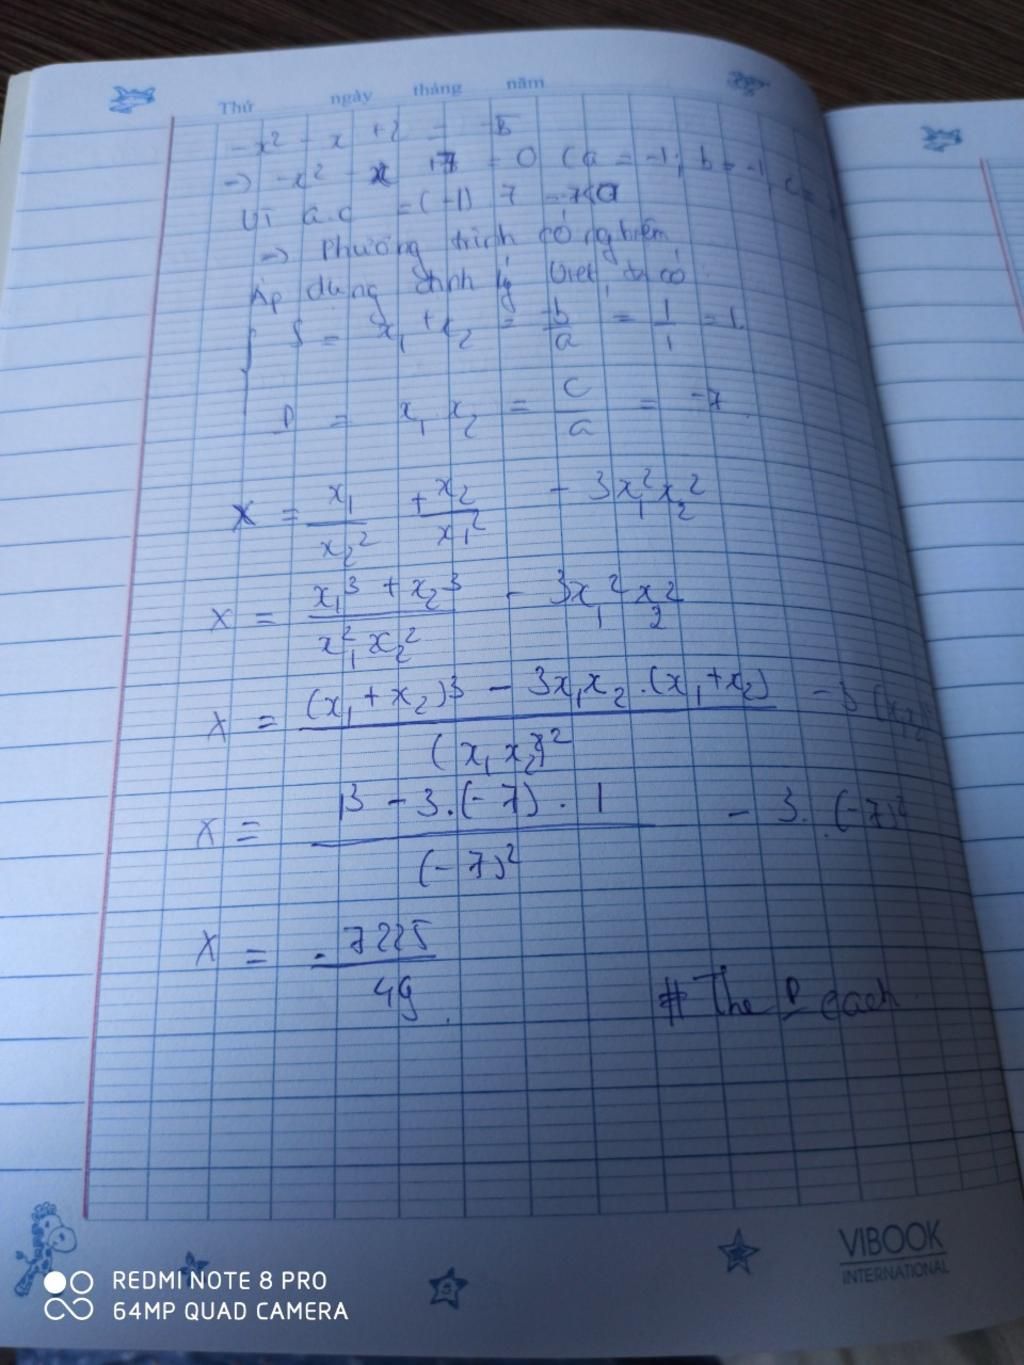 Thứ ngày tháng năm
-x² - x + 2 = -5
→ -x² - x + 7 = 0 (a = -1; b = -1, c = 7
Vì a.c = (-1) 7 = -7<0
→ Phương trình có nghiệm
Áp dụng định lý Viet, ta có
S = x₁ + x₂ = -b/a = 1/1 = 1.
P = x₁ x₂ = c/a = -7.
X = x₁/x₂² + x₂/x₁² - 3x₁²x₂²
X = (x₁³ + x₂³)/(x₁² x₂²) - 3x₁² x₂²
X = ((x₁ + x₂)³ - 3x₁x₂.(x₁+x₂))/(x₁ x₂)² - 3
X = (1³ - 3.(-7) . 1)/(-7)² - 3. (-7)²
X = -7225/49.
# The P each.
VIBOOK
INTERNATIONAL
REDMI NOTE 8 PRO
64MP QUAD CAMERA